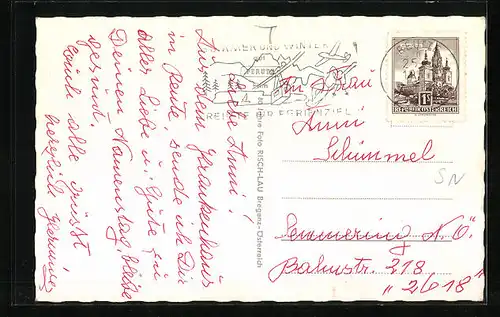 Liebe Anni!
Aus dem Krankenhaus
in Reute sende ich Dir
alles Liebe u. Gute zu
Deinem Namenstag, bleibe
gesund.
Euch alle grüsst
herzlich
SOMMER UND WINTER
REUTTE
IHR FERIENZIEL
Foto RISCH-LAU Bregenz-Österreich
1S
REPUBLIK ÖSTERREICH
An Frau
Anni
Schimmel
Semmering N.Ö.
Bahnstr. 218
"2618"
SN